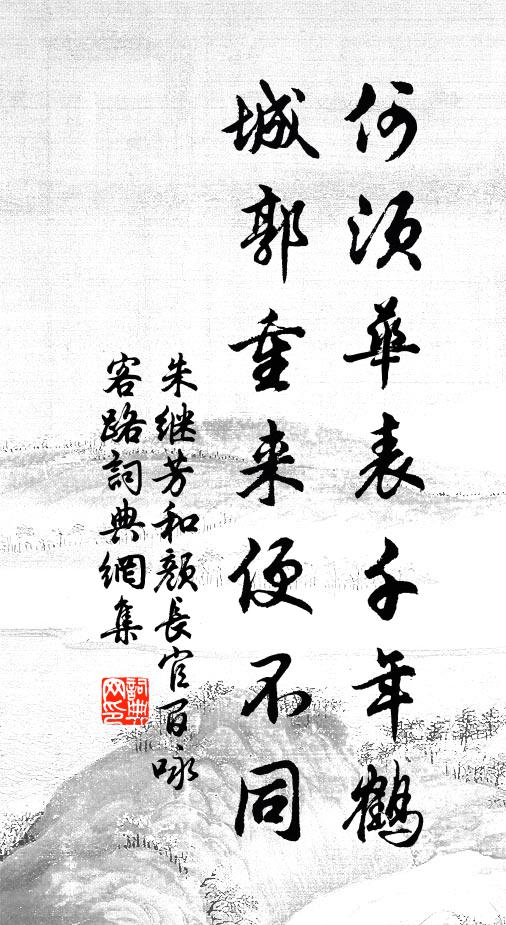 何須華表千年鶴
城郭重来便不同
朱继芳和顏長官百咏
客路詞典網集
詞典网印